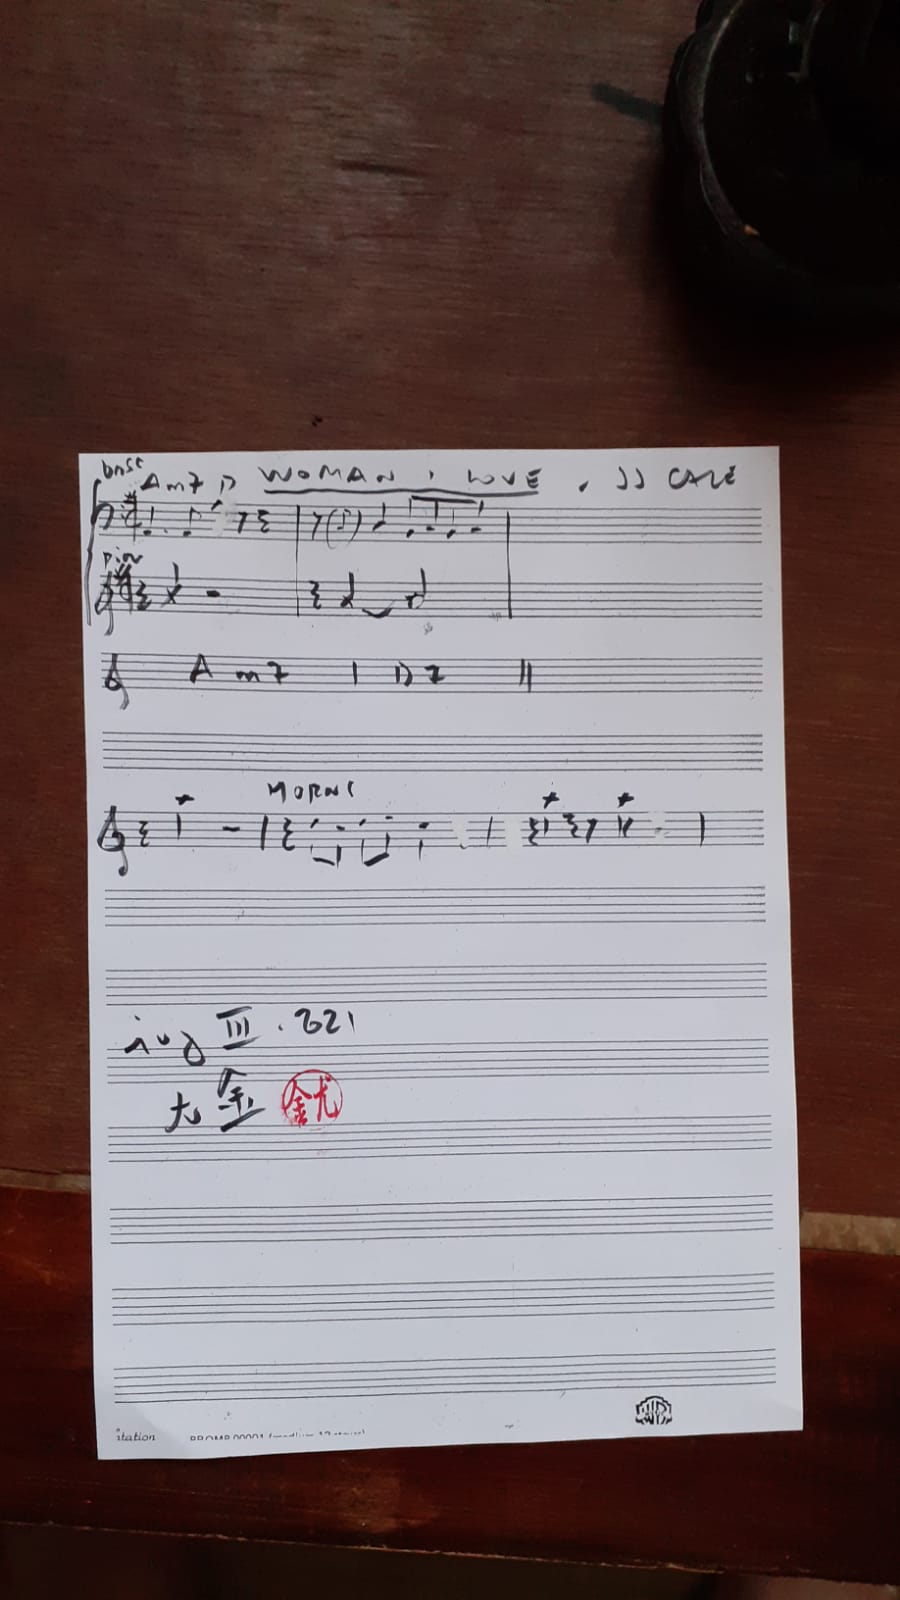 bass
Am7 D WOMAN I LOVE . JJ CALE
Am7 | D7 ||
HORNS
aug III . 221
尤金 金尤
itation